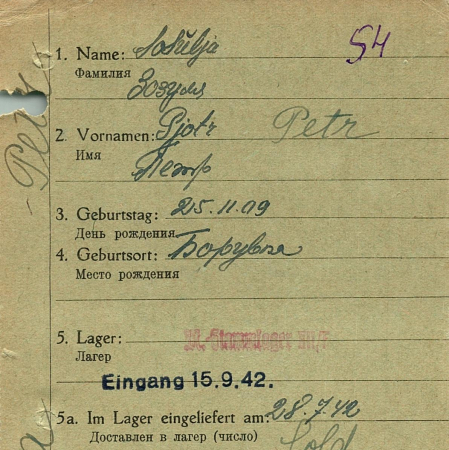 54
1. Name: Sosulja
Фамилия Зозуля
2. Vornamen: Pjotr Petr
Имя Петр
3. Geburtstag: 25.11.09
День рождения
4. Geburtsort:
Место рождения
5. Lager:
Лагерь
Eingang 15.9.42.
5a. Im Lager eingeliefert am: 28.7.42
Доставлен в лагерь (число)